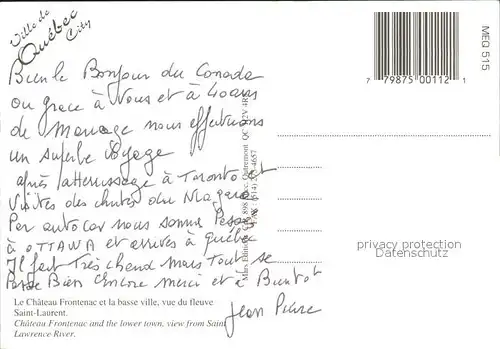 Ville de
Québec
City
MEQ 515
7 79875 00112 1
Bien le Bonjour du Canada
ou grace à Vous et à 40 ans
de Mariage nous effectuons
un superbe Voyage
après atterrissage à Toronto et
Visites des chutes du Niagara
Par autocar nous somme Passé
à OTTAWA et arrivés à Québec
Il fait Très chaud Mais Tout se
Passe Bien Encore merci et à Bientot
Jean Pierre
privacy protection
Datenschutz
Le Château Frontenac et la basse ville, vue du fleuve
Saint-Laurent.
Château Frontenac and the lower town, view from Saint
Lawrence River.